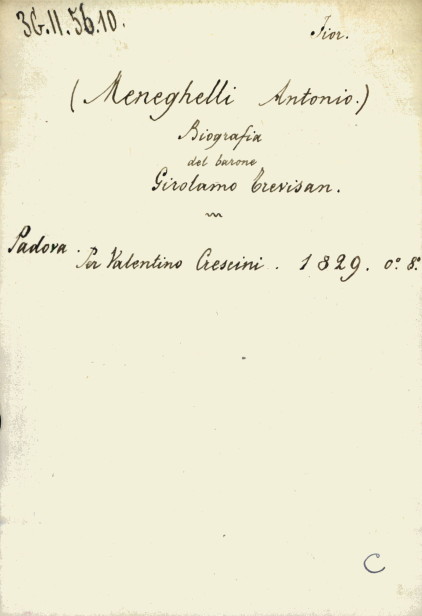 3G.II.56.10.
Fior.
(Meneghelli Antonio.)
Biografia
del barone
Girolamo Trevisan.
Padova.
Per Valentino Crescini. 1829. 0.° 8.°
C